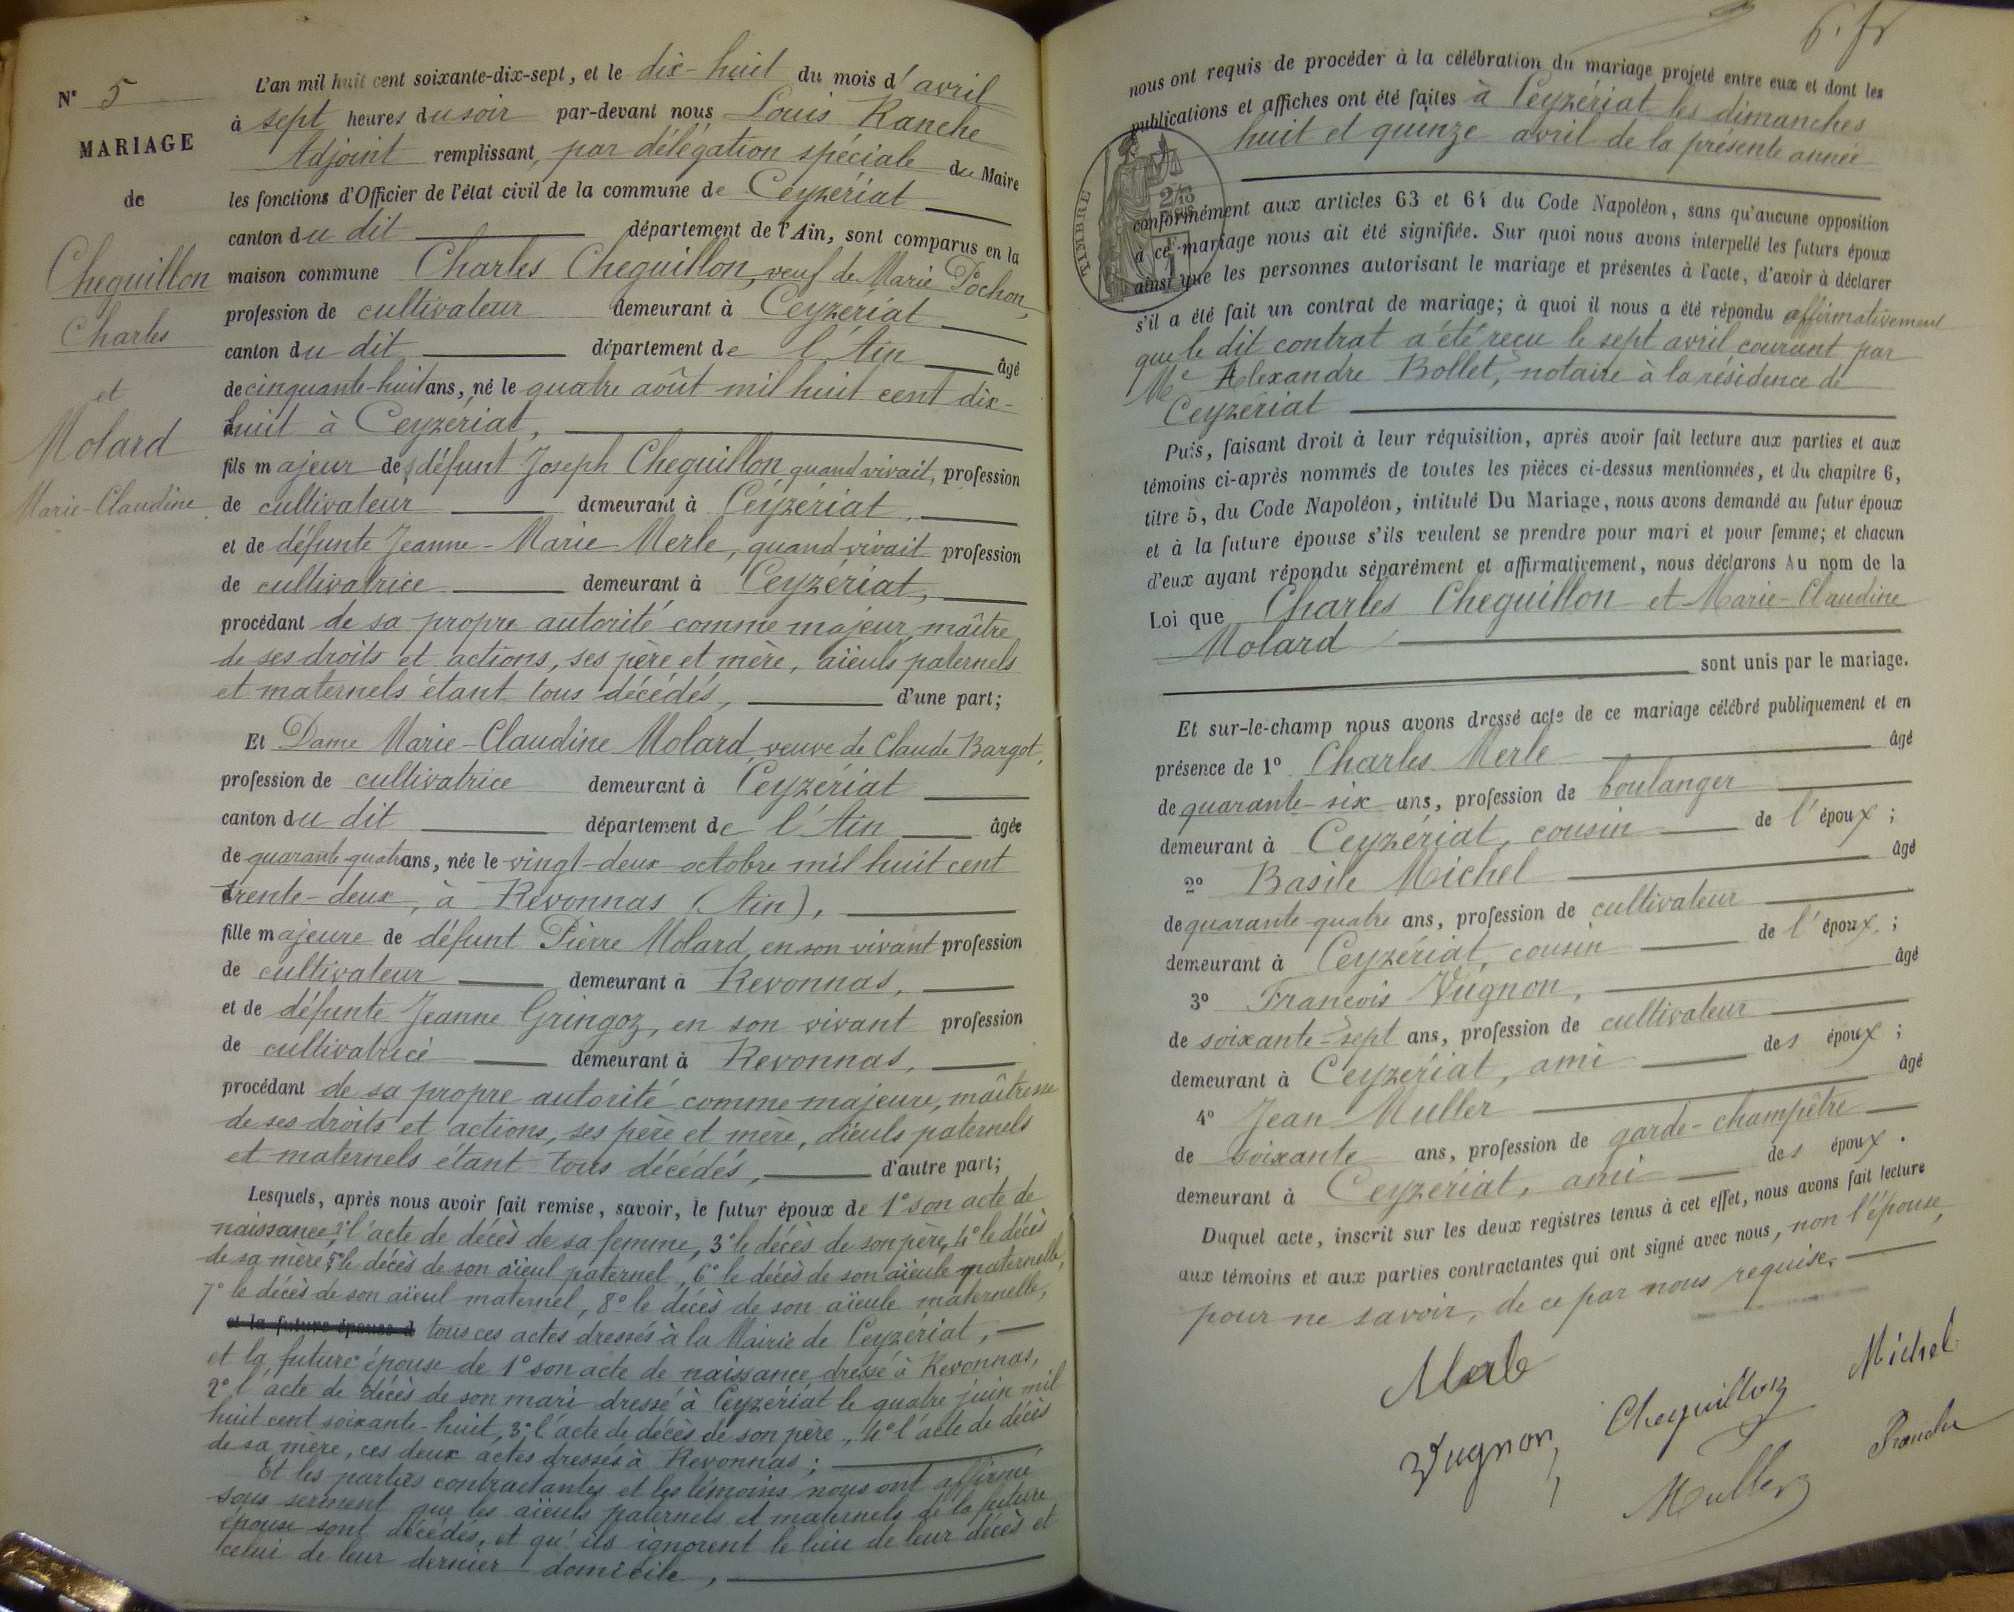 N° 5
MARIAGE
de
Cheguillon
Charles
et
Molard
Marie-Claudine
L'an mil huit cent soixante-dix-sept, et le dix-huit du mois d'avril
à sept heures du soir par-devant nous Louis Ranche
Adjoint remplissant, par délégation spéciale du Maire
les fonctions d'Officier de l'état civil de la commune de Ceyzériat
canton du dit département de l'Ain, sont comparus en la
maison commune Charles Cheguillon, veuf de Marie Pochon,
profession de cultivateur demeurant à Ceyzériat
canton du dit département de l'Ain âgé
de cinquante-huit ans, né le quatre août mil huit cent dix-
huit à Ceyzériat,
fils majeur de défunt Joseph Cheguillon quand vivait, profession
de cultivateur demeurant à Ceyzériat,
et de défunte Jeanne-Marie Merle, quand vivait profession
de cultivatrice demeurant à Ceyzériat,
procédant de sa propre autorité comme majeur, maître
de ses droits et actions, ses père et mère, aïeuls paternels
et maternels étant tous décédés, d'une part;
Et Dame Marie-Claudine Molard, veuve de Claude Bargot,
profession de cultivatrice demeurant à Ceyzériat
canton du dit département de l'Ain âgée
de quarante-quatre ans, née le vingt-deux octobre mil huit cent
trente-deux, à Revonnas (Ain),
fille majeure de défunt Pierre Molard, en son vivant profession
de cultivateur demeurant à Revonnas,
et de défunte Jeanne Gringoz, en son vivant profession
de cultivatrice demeurant à Revonnas,
procédant de sa propre autorité comme majeure, maîtresse
de ses droits et actions, ses père et mère, aïeuls paternels
et maternels étant tous décédés, d'autre part;
Lesquels, après nous avoir fait remise, savoir, le futur époux de 1° son acte de
naissance, 2° l'acte de décès de sa femme, 3° le décès de son père, 4° le décès
de sa mère, 5° le décès de son aïeul paternel, 6° le décès de son aïeule paternelle,
7° le décès de son aïeul maternel, 8° le décès de son aïeule maternelle,
et la future épouse d tous ces actes dressés à la Mairie de Ceyzériat,
et la future épouse de 1° son acte de naissance dressé à Revonnas,
2° l'acte de décès de son mari dressé à Ceyzériat le quatre juin mil
huit cent soixante-huit, 3° l'acte de décès de son père, 4° l'acte de décès
de sa mère, ces deux actes dressés à Revonnas;
Et les parties contractantes et les témoins nous ont affirmé
sous serment que les aïeuls paternels et maternels de la future
épouse sont décédés, et qu'ils ignorent le lieu de leur décès et
celui de leur dernier domicile,
6. fr
nous ont requis de procéder à la célébration du mariage projeté entre eux et dont les
publications et affiches ont été faites à Ceyzériat les dimanches
huit et quinze avril de la présente année
TIMBRE
conformément aux articles 63 et 64 du Code Napoléon, sans qu'aucune opposition
à ce mariage nous ait été signifiée. Sur quoi nous avons interpellé les futurs époux
ainsi que les personnes autorisant le mariage et présentes à l'acte, d'avoir à déclarer
s'il a été fait un contrat de mariage; à quoi il nous a été répondu affirmativement
que le dit contrat a été reçu le sept avril courant par
Me Alexandre Bollet, notaire à la résidence de
Ceyzériat
Puis, faisant droit à leur réquisition, après avoir fait lecture aux parties et aux
témoins ci-après nommés de toutes les pièces ci-dessus mentionnées, et du chapitre 6,
titre 5, du Code Napoléon, intitulé Du Mariage, nous avons demandé au futur époux
et à la future épouse s'ils veulent se prendre pour mari et pour femme; et chacun
d'eux ayant répondu séparément et affirmativement, nous déclarons Au nom de la
Loi que Charles Cheguillon et Marie-Claudine
Molard
sont unis par le mariage.
Et sur-le-champ nous avons dressé acte de ce mariage célébré publiquement et en
présence de 1° Charles Merle âgé
de quarante-six ans, profession de boulanger
demeurant à Ceyzériat, cousin de l'époux;
2° Basile Michel âgé
de quarante-quatre ans, profession de cultivateur
demeurant à Ceyzériat, cousin de l'époux;
3° François Vugnon, âgé
de soixante-sept ans, profession de cultivateur
demeurant à Ceyzériat, ami des époux;
4° Jean Muller âgé
de soixante ans, profession de garde-champêtre
demeurant à Ceyzériat, ami des époux.
Duquel acte, inscrit sur les deux registres tenus à cet effet, nous avons fait lecture
aux témoins et aux parties contractantes qui ont signé avec nous, non l'épouse,
pour ne savoir, de ce par nous requise.
Merle
Michel
Cheguillon
Vugnon
Ranche
Muller